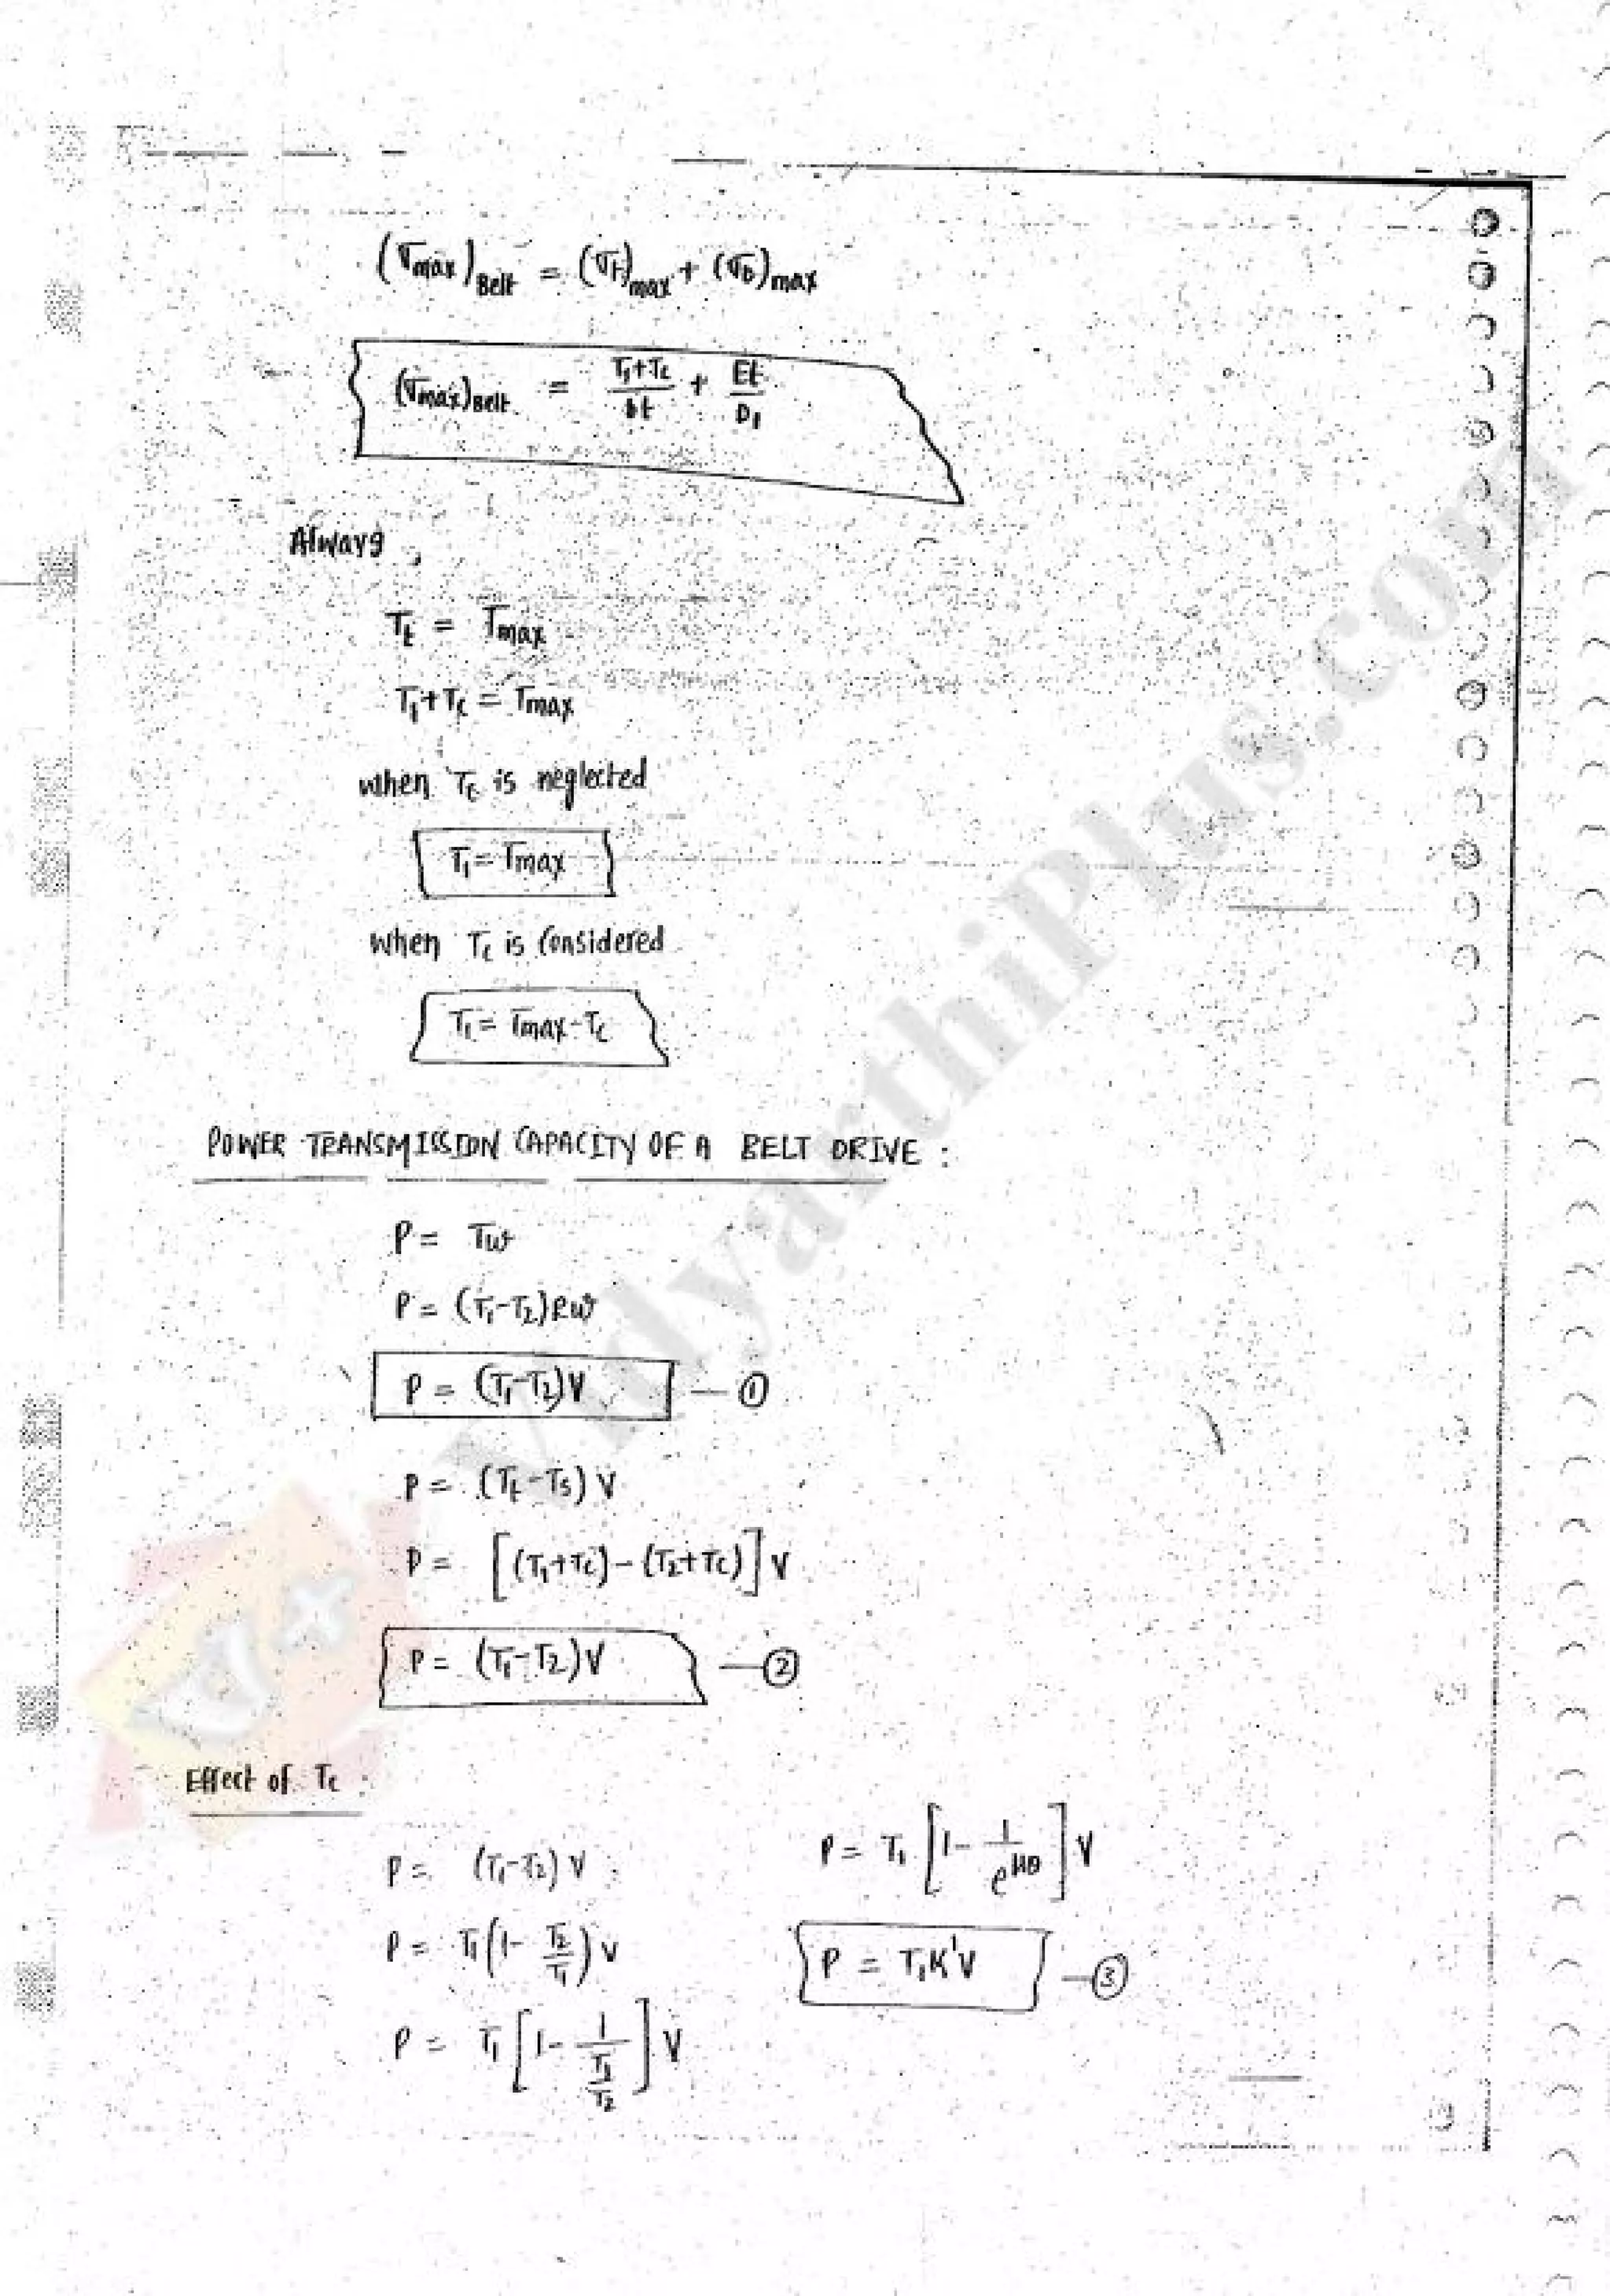 (σmax)Belt = (σt)max + (σb)max
(σmax)Belt = T1+Tc/bt + Et/D1
Always,
Tt = Tmax
T1+Tc = Tmax
when Tc is neglected
T1 = Tmax
when Tc is considered
T1 = Tmax - Tc
POWER TRANSMISSION CAPACITY OF A BELT DRIVE :
P = Tω
P = (T1-T2)Rω
P = (T1-T2)V — ①
P = (Tt-Ts) V
P = [(T1+Tc)-(T2+Tc)] V
P = (T1-T2)V — ②
Effect of Tc :
P = (T1-T2) V
P = T1(1- T2/T1) V
P = T1 [1- 1/(T1/T2)] V
P = T1 [1- 1/e^μθ] V
P = T1K'V — ③
VidyarthiPlus.com
V+